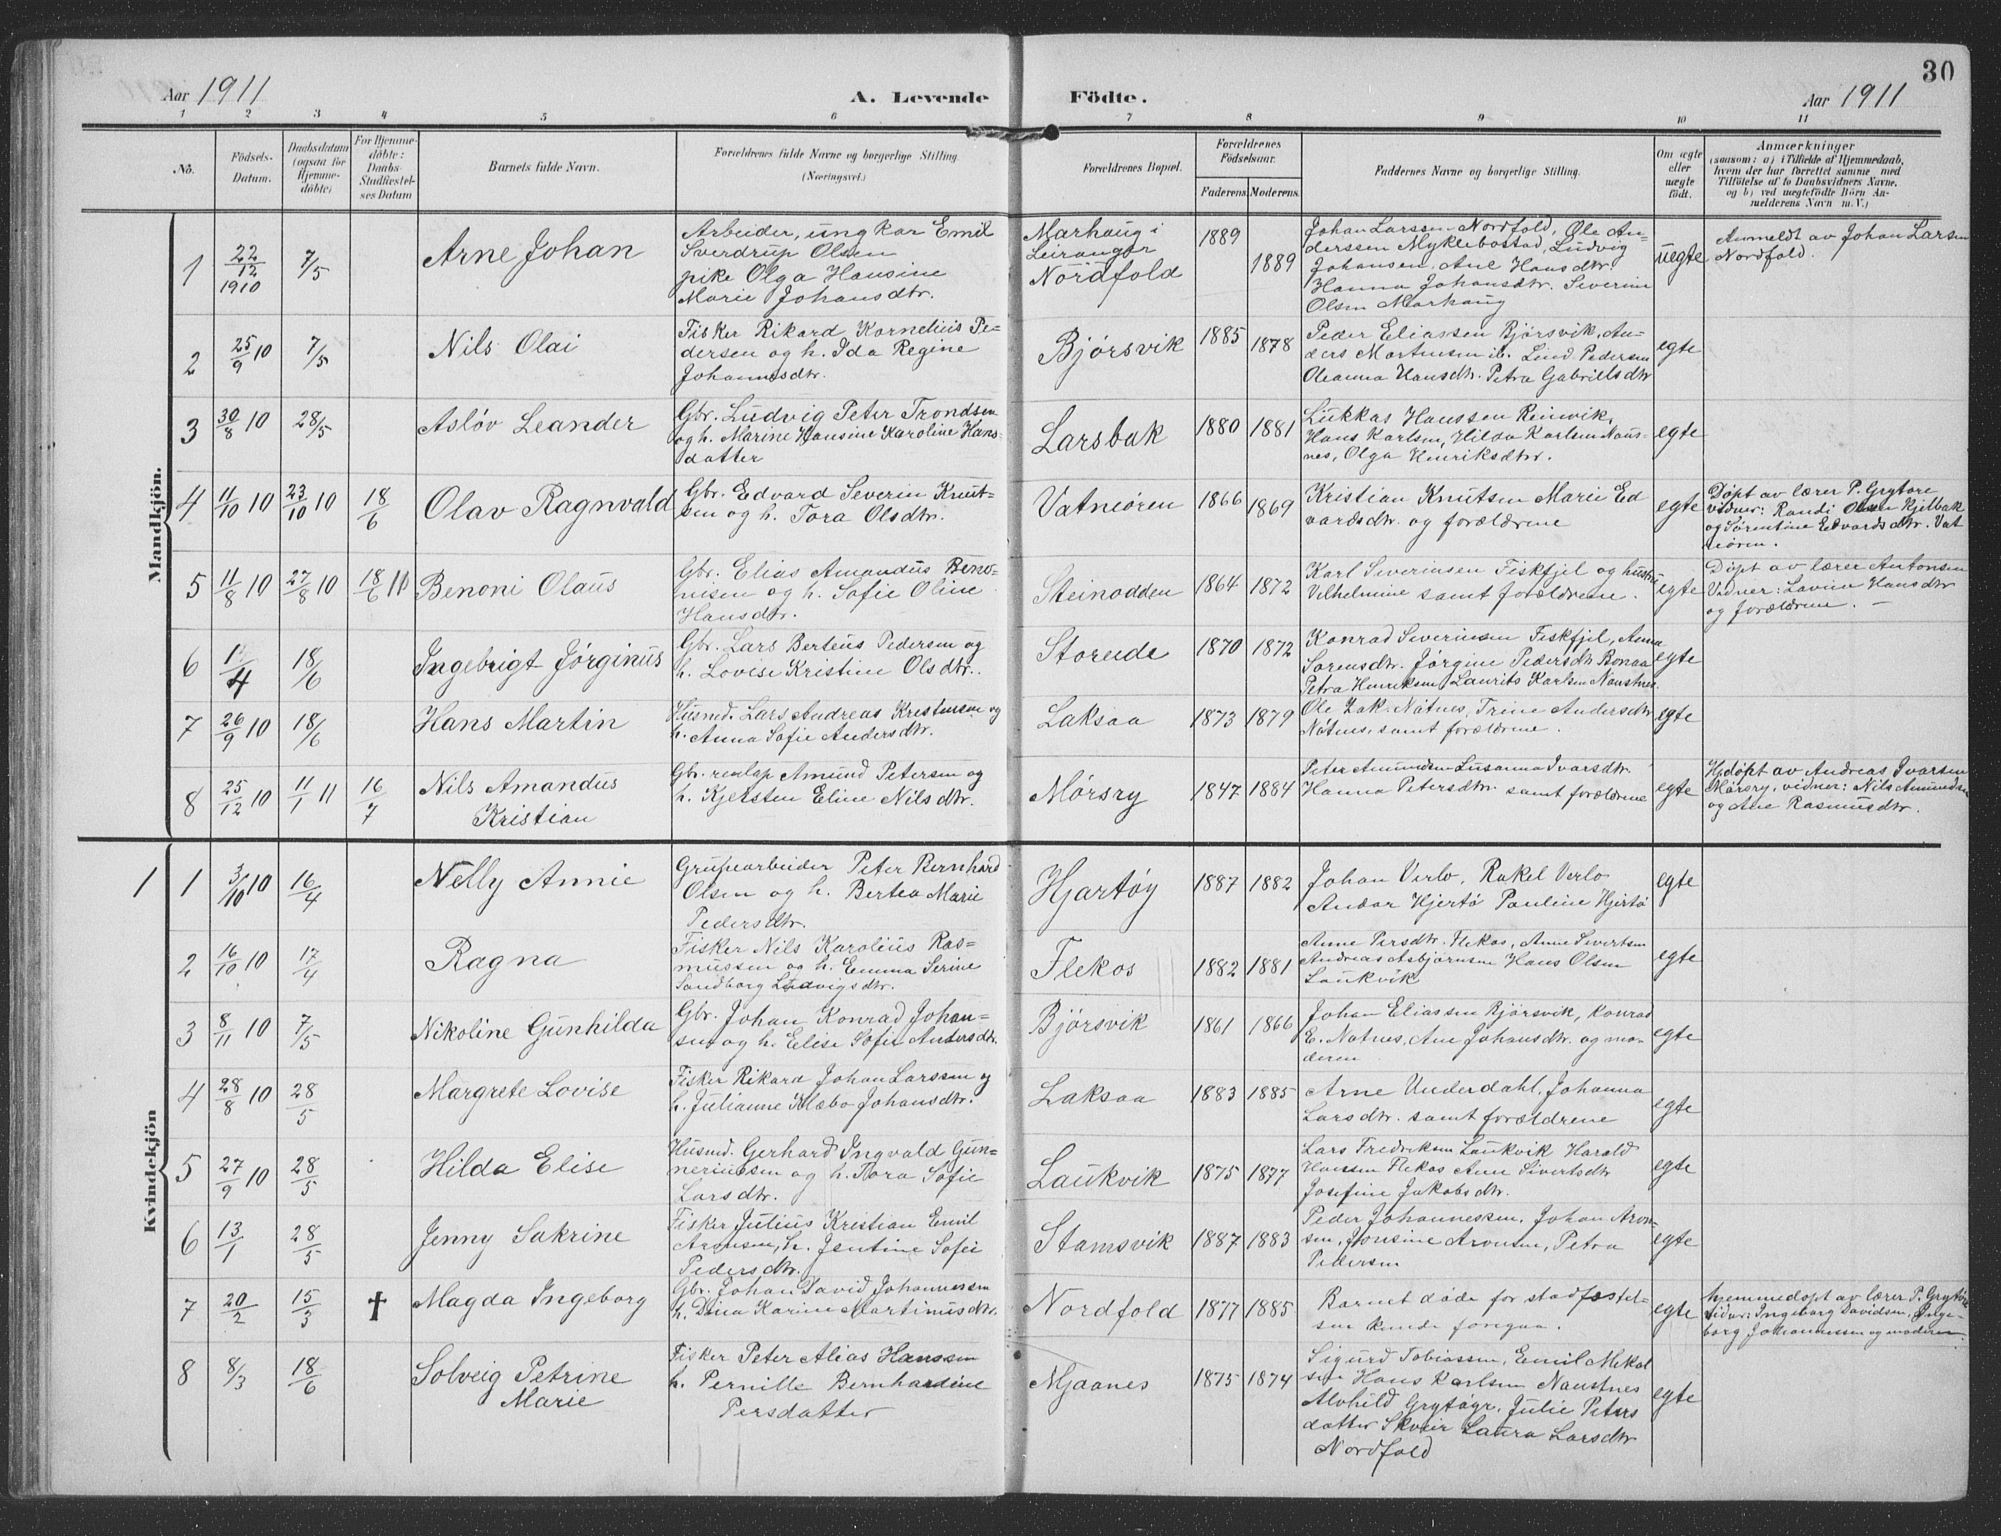 30
Aar 1911
A. Levende Födte.
Aar 1911
1 2 3 4 5 6 7 8 9 10 11
No.
Födsels-
Datum.
Daabsdatum
(ogsaa for
Hjemme-
döbte)
For Hjemme-
döbte:
Daabs-
Stadfæstel-
ses Datum
Barnets fulde Navn.
Forældrenes fulde Navne og borgerlige Stilling
(Næringsvei.)
Forældrenes Bopæl.
Forældrenes
Födselsaar.
Faderens. Moderens.
Faddernes Navne og borgerlige Stilling.
Om ægte
eller
uægte
født.
Anmærkninger
(saasom: a) i Tilfælde af Hjemmedaab,
hvem der har forrettet samme med
Tilföielse af to Daabsvidners Navne,
og b) ved uegtefödte Börn An-
melderens Navn m. V.)
Mandkjön.
1 22/12 1910 7/5 Arne Johan
Arbeider, ungkar Emil
Sverdrup Olsen
pike Olga Hansine
Marie Johansdtr.
Marhaug i
Leiranger
Nordfold
1889 1889
Johan Larssen Nordfold, Ole An-
derssen Myklebostad, Ludvig
Johansen, Ane Hansdtr.
Hanna Johansdtr. Severine
Olsen Marhaug
uegte
Anmeldt av Johan Larsen
Nordfold.
2 25/9 10 7/5 Nils Olai
Fisker Rikard Kornelius Pe-
dersen og h. Ida Regine
Johannesdtr.
Bjørsvik 1885 1878
Peder Eliassen Bjørsvik, An-
ders Martinsen ib. Lind Pedersen
Oleanna Hansdtr. Petra Gabrielsdtr
egte
3 30/8 10 28/5 Asløv Leander
Gbr. Ludvig Peter Trondsen
og h. Marine Hansine Karoline Hans-
datter
Larsbak 1880 1881
Lukkas Hanssen Reinvik,
Hans Karlsen, Hilda Karlsen Naus-
nes, Olga Henriksdtr.
egte
4 11/10 10 23/10 10 18/6 Olav Ragnvald
Gbr. Edvard Severin Knut-
sen og h. Tora Olsdtr.
Vatneören 1866 1869
Kristian Knutsen Marie Ed
vardsdtr. og forældrene
egte
Døpt av lærer P. Grytøre
vidner: Randi Olsen Kjelbak
og Sørentine Edvardsdtr. Vat
neören.
5 11/8 10 27/8 10 18/6 11 Benoni Olaus
Gbr. Elias Amandus Beno-
nisen og h. Sofie Oline
Hansdtr.
Steinodden 1864 1872
Karl Severinsen Fiskfjel og hustru
Vilhelmine samt forældrene.
egte
Døpt av lærer Antonsen
Vidner: Lovine Hansdtr
og forældrene. —
6 18/6 Ingebrigt Jørginus
Gbr. Lars Berteus Pedersen og
h. Lovise Kristine Olsdtr.
Storeide 1870 1872
Konrad Severinsen Fiskfjel, Anna
Sørensdtr. Jørgine Pedersdtr Bonaa
Petra Henriksen, Laurits Karlsen Naustnes.
egte
7 26/9 10 18/6 Hans Martin
Husmd. Lars Andreas Kristensen og
h. Anna Sofie Andersdtr.
Laksaa 1873 1879
Ole Zak. Nótnes, Trine Andersdtr
Nótnes, samt forældrene.
egte
8 25/12 10 11/1 11 16/7 Nils Amandus
Kristian
Gbr. renlap Amund Petersen og
h. Kjersten Eline Nilsdtr.
Mørsry 1847 1884
Peter Amundsen Susanna Ivarsdtr.
Hanna Petersdtr. samt forældrene
egte
Hjdøpt av Andreas Ivarsen
Mørsry, vidner: Nils Amundsen
og Ane Rasmusdtr.
Kvindekjön
1 1 3/10 10 16/4 Nelly Annie
Grupearbeider Peter Bernhard
Olsen og h. Bertea Marie
Pedersdtr.
Hjartøy 1887 1882
Johan Verlo, Rakel Verlo
Andor Hjertö Pauline Hjertö
egte
2 16/10 10 17/4 Ragna
Fisker Nils Karolius Ras-
mussen og h. Emma Serine
Sandborg Ludvigsdtr.
Flekos 1882 1881
Anne Persdtr. Flekos, Anne Sivertsen
Andreas Asbjørnsen Hans Olsen
Laukvik
egte
3 8/11 10 7/5 Nikoline Gunhilda
Gbr. Johan Konrad Johan-
sen og h. Elise Sofie Andersdtr.
Bjørsvik 1861 1866
Johan Eliassen Bjørsvik, Konrad
E. Natnes, Ane Johansdtr. og mo-
deren
egte
4 28/8 10 28/5 Margrete Lovise
Fisker Rikard Johan Larssen og
h. Julianne Mæbo Johansdtr.
Laksaa 1883 1885
Arne Underdahl, Johanna
Larsdtr. samt forældrene
egte
5 27/9 10 28/5 Hilda Elise
Husmd. Gerhard Ingvald Gun-
neriussen og h. Tora Sofie
Larsdtr.
Laukvik 1875 1877
Lars Fredriksen Laukvik Harald
Hanssen Flekos Ane Sivertsdtr
Josefine Jakobsdtr.
egte
6 13/1 28/5 Jenny Sakrine
Fisker Julius Kristian Emil
Aronsen, h. Jentine Sofie
Pedersdtr.
Stamsvik 1887 1883
Peder Johannessen, Johan Aron-
sen, Jonsine Aronsen, Petra
Pedersen
egte
7 20/2 15/3 † Magda Ingeborg
Gbr. Johan David Johannessen
h. Dina Karine Martinusdtr.
Nordfold 1877 1885
Barnet døde før stadfæstel-
sen kunde foregaa.
egte
Hjemmedøpt av lærer P. Grytöre
vidner: Ingeborg Davidsen, Inge-
borg Johannessen og moderen
8 8/3 18/6 Solveig Petrine
Marie
Fisker Peter Alias Hanssen
h. Pernille Bernhardine
Persdatter
Mjaanes 1875 1874
Sigurd Tobiassen, Emil Mikal
sen Hans Karlsen Naustnes
Alvhild Grytøyr. Julie Peters
datter Skveir Laura Larsdtr
Nordfold
egte